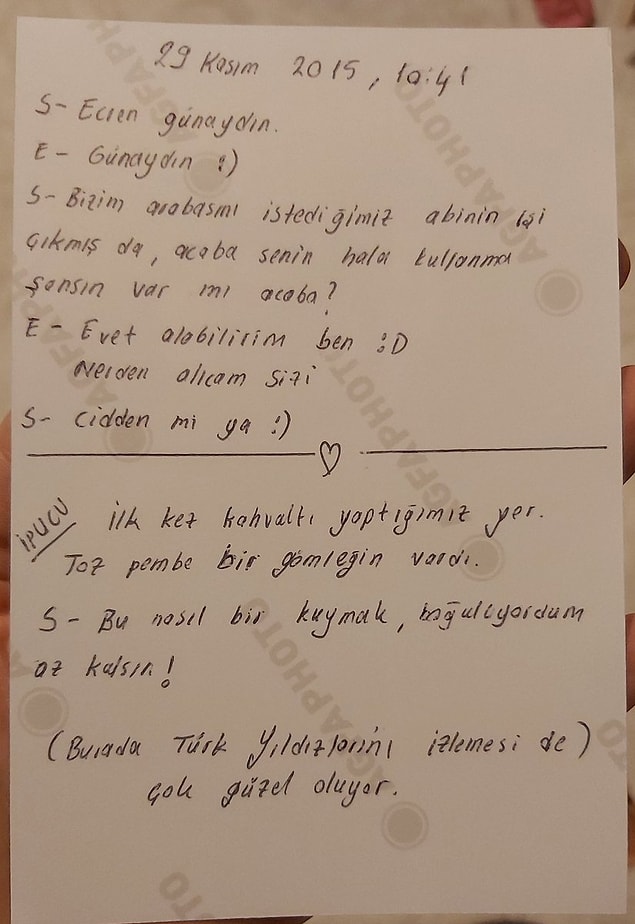 29 Kasım 2015, 10:41
S- Ecren günaydın.
E- Günaydın :)
S- Bizim arabasını istediğimiz abinin işi
çıkmış da, acaba senin hala kullanma
şansın var mı acaba?
E- Evet alabilirim ben :D
Nerden alıcam sizi
S- Cidden mi ya :)
İPUCU
İlk kez kahvaltı yaptığımız yer.
Toz pembe bir gömleğin vardı.
S- Bu nasıl bir kuymak, boğuluyordum
az kalsın!
(Burada Türk Yıldızlarını izlemesi de)
çok güzel oluyor.
AGFAPHOTO
AGFAPHOTO
AGFAPHOTO
AGFAPHOTO
AGFAPHOTO